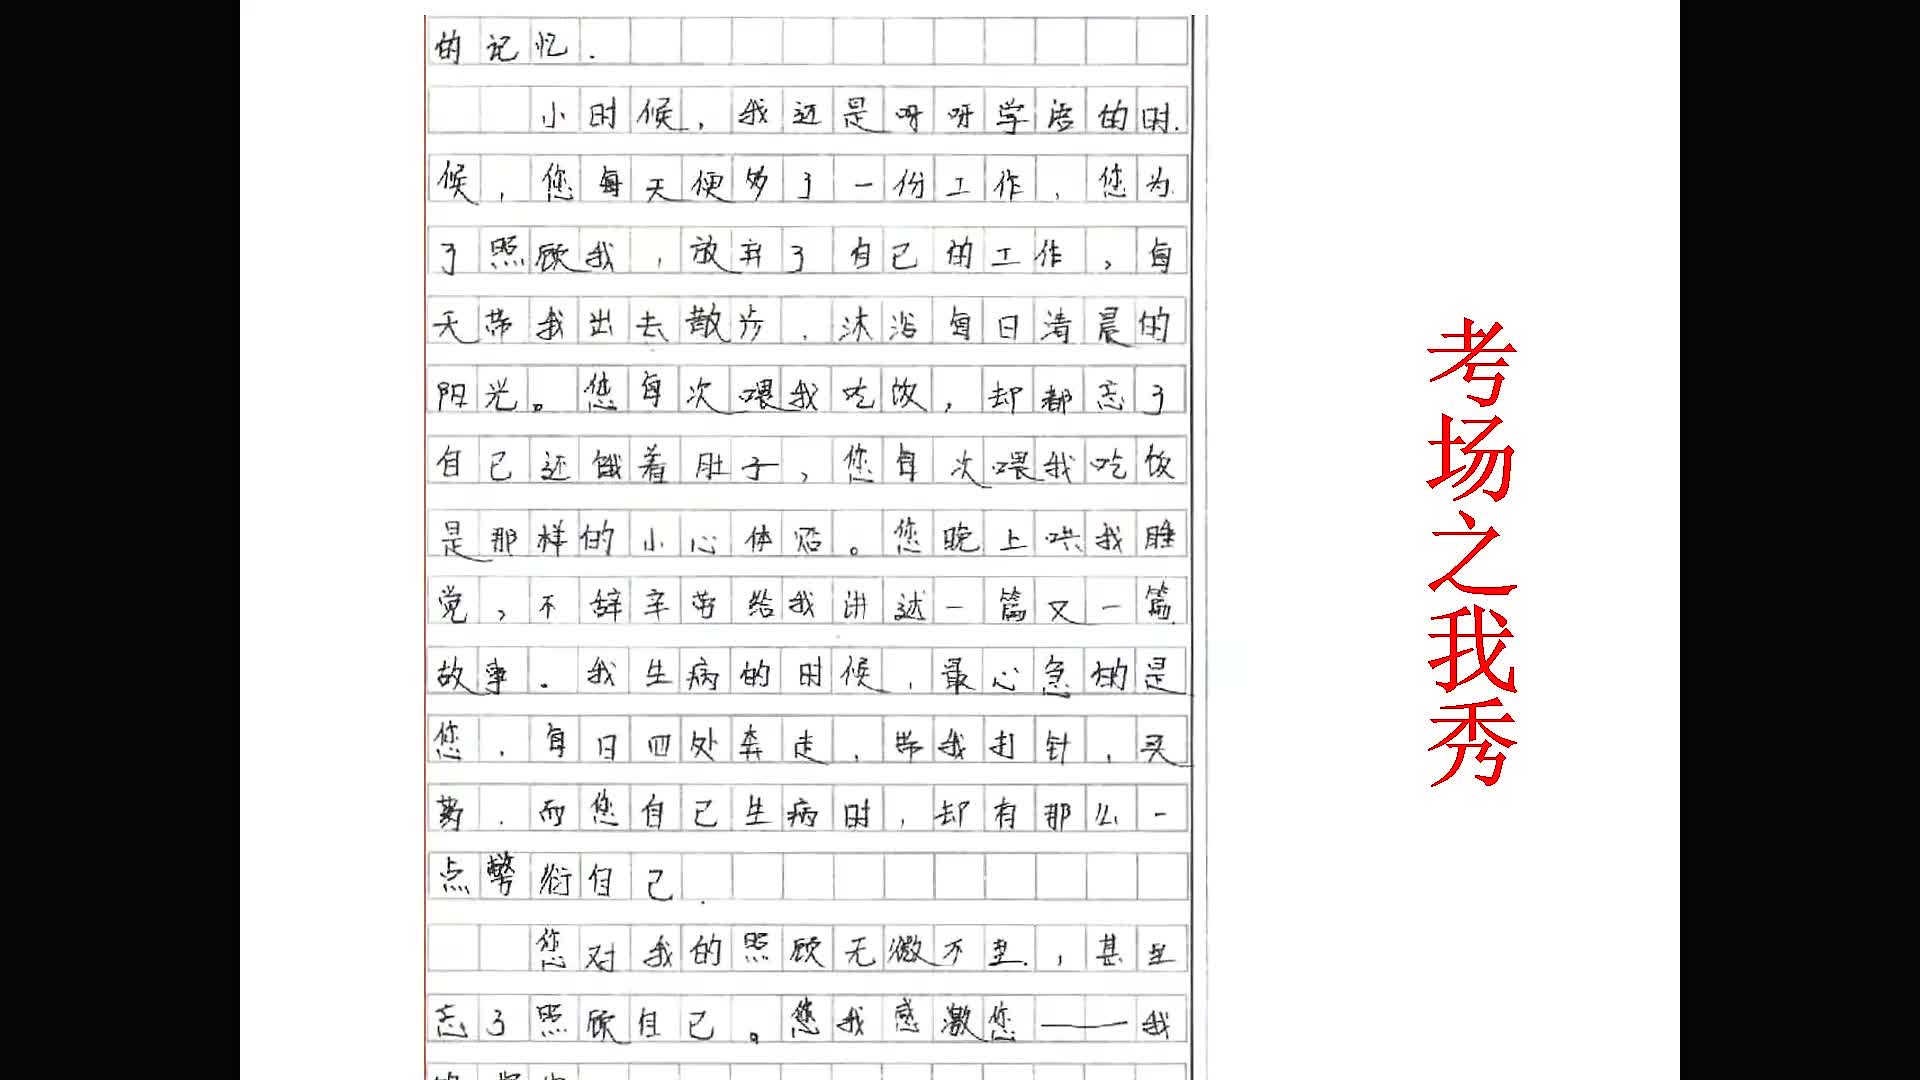 的记忆.
小时候，我还是呀呀学语的时
候，您每天便多了一份工作，您为
了照顾我，放弃了自己的工作，每
天带我出去散步，沐浴每日清晨的
阳光。您每次喂我吃饭，却都忘了
自己还饿着肚子，您每次喂我吃饭
是那样的小心体贴。您晚上哄我睡
觉，不辞辛劳给我讲述一篇又一篇
故事.我生病的时候，最心急的是
您，每日四处奔走，带我打针，买
药.而您自己生病时，却有那么一
点 衍自己.
您对我的照顾无微不至，甚至
忘了照顾自己。您我感激您——我
考场之我秀